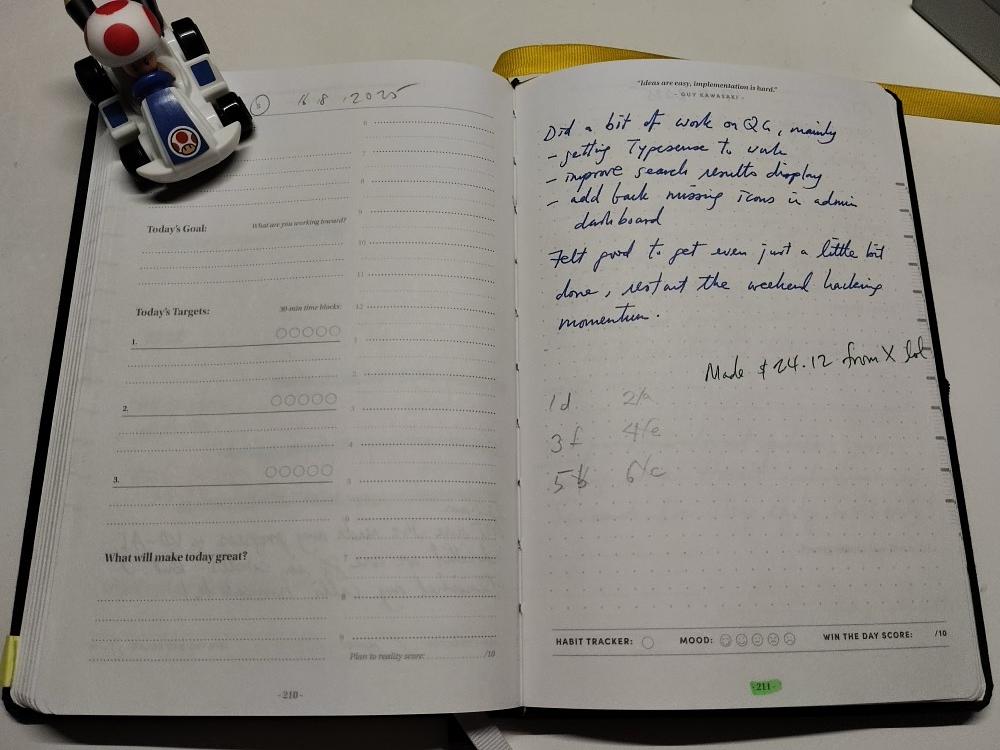 S 16.8.2025
6
8
9
Today's Goal: What are you working toward?
10
11
Today's Targets: 30-min time blocks:
12
1.
1
2
2.
3
4
3.
5
6
What will make today great?
7
8
9
Plan to reality score: /10
- 210 -
"Ideas are easy, implementation is hard."
- GUY KAWASAKI -
Did a bit of work on QG, mainly
- getting Typesense to work
- improve search results display
- add back missing icons in admin
dashboard
Felt good to get even just a little bit
done, restart the weekend hacking
momentum.
Made $24.12 from X lol
1d 2/a
3f 4/e
5/b 6/c
HABIT TRACKER: MOOD: WIN THE DAY SCORE: /10
- 211 -